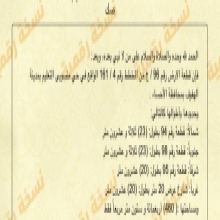 الحمد لله وحده والصلاة والسلام على من لا نبي بعده، وبعد:
فإن قطعة الارض رقم 96 / ج من المخطط رقم 4 / 161 الواقع في حي منسوبي التعليم بمدينة
الهفوف بمحافظة الأحساء
وحدودها وأطوالها كالتالي:
شمالاً: قطعة رقم بطول: (23) ثلاثة و عشرون متر
جنوباً: قطعة رقم 98 بطول: (23) ثلاثة و عشرون متر
شرقاً: قطعة رقم 95 بطول: (20) عشرون متر
غرباً: شارع عرض 20 متر بطول: (20) عشرون متر
ومساحتها: (460) أربعمائة و ستون متر مربعاً فقط
نسخة رقمية
نسخة رقمية